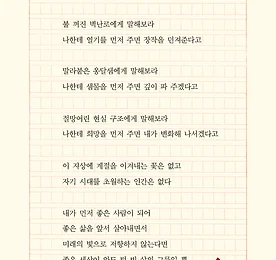 불 꺼진 벽난로에게 말해보라
나한테 열기를 먼저 주면 장작을 던져준다고
말라붙은 옹달샘에게 말해보라
나한테 샘물을 먼저 주면 깊이 파 주겠다고
절망어린 현실 구조에게 말해보라
나한테 희망을 먼저 주면 내가 변화해 나서겠다고
이 지상에 계절을 이겨내는 꽃은 없고
자기 시대를 초월하는 인간은 없다
내가 먼저 좋은 사람이 되어
좋은 삶을 앞서 살아내면서
미래의 빛으로 저항하지 않는다면